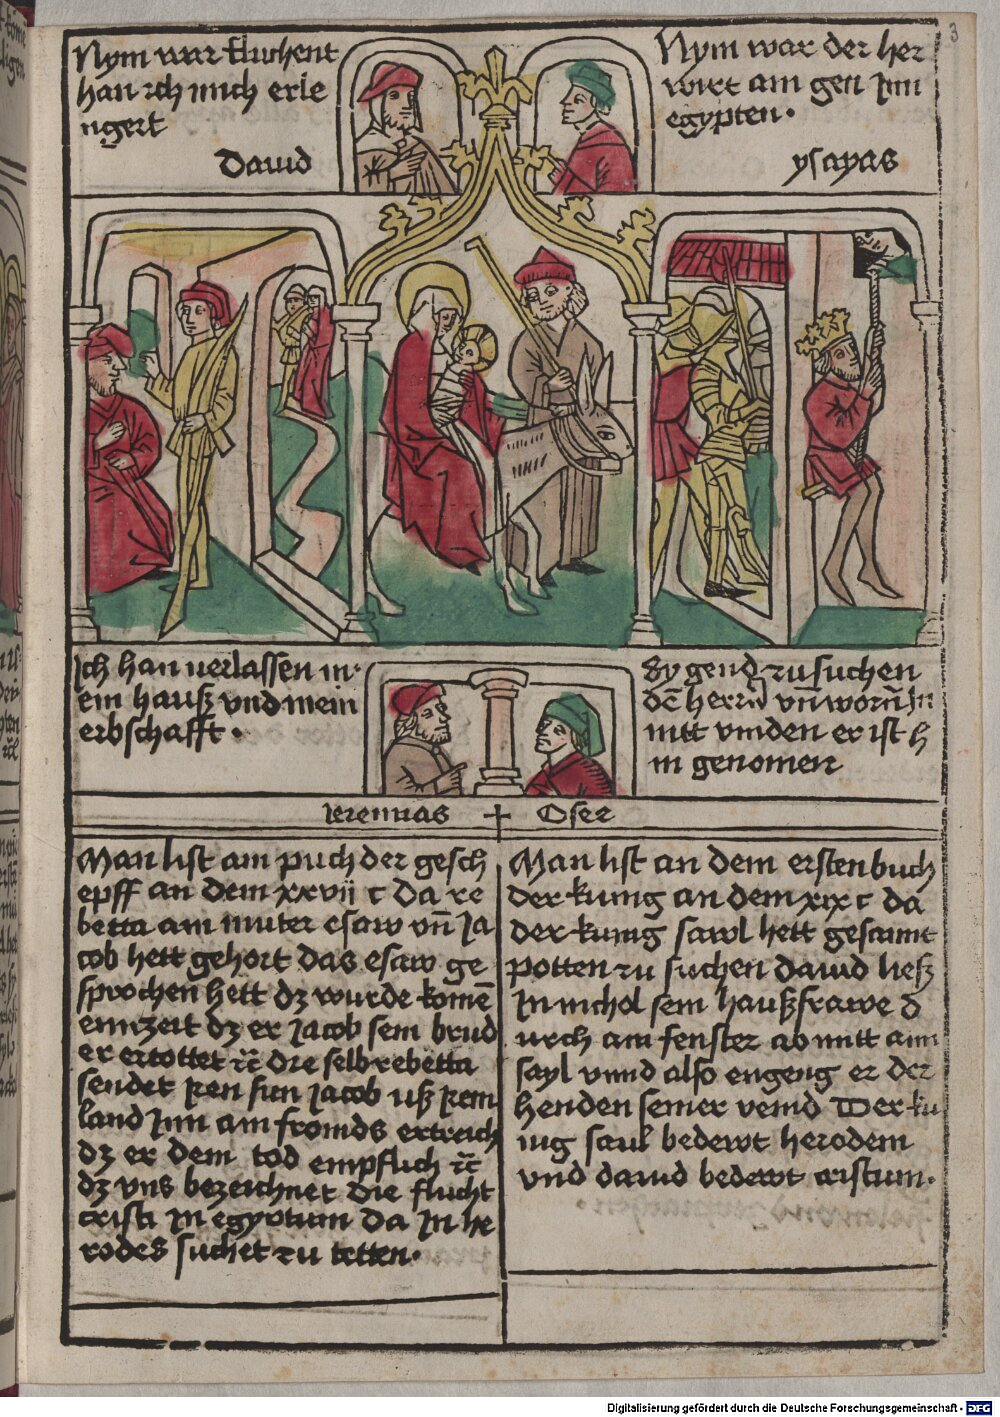 Nym war fluchent
han ich mich erle
ngert
Dauid
Nym war der her
wirt am gen Inn
egypten.
ysayas
Ich han verlassen m
ein hauß vnd mein
erbschafft.
Sy gend zu suchen
vn̄ worn̄ In
nitt vinden er ist h
in genomen
Ieremias + Osee
Man list am puch der gesch
epff an dem xxvii c da re
becca am muter esaw vn̄ Ja
cob hett gehort das esaw ge
sprochen hett dz wurde komē
ein zeit dz er Jacob sein brud
er ertottet ⁊c̄ die selb rebecca
sendet Iren sun Jacob uß Irem
land Inn am fromds ertreich
dz er dem tod empflich ⁊c̄
dz vns bezeichnet die flucht
cristi In egyptum da In he
rodes suchet zu tetten.
Man list an dem ersten buch
der kunig an dem xix c da
der kunig sawl hett gesannt
potten zu suchen dauid ließ
In michol sein haußfrawe d
urch am fenster ab mitt aim
sayl vnnd also engeng er der
henden seiner veind Der ku
nig saul bedewt herodem
vnd dauid bedewt cristum.
3
Digitalisierung gefördert durch die Deutsche Forschungsgemeinschaft - DFG